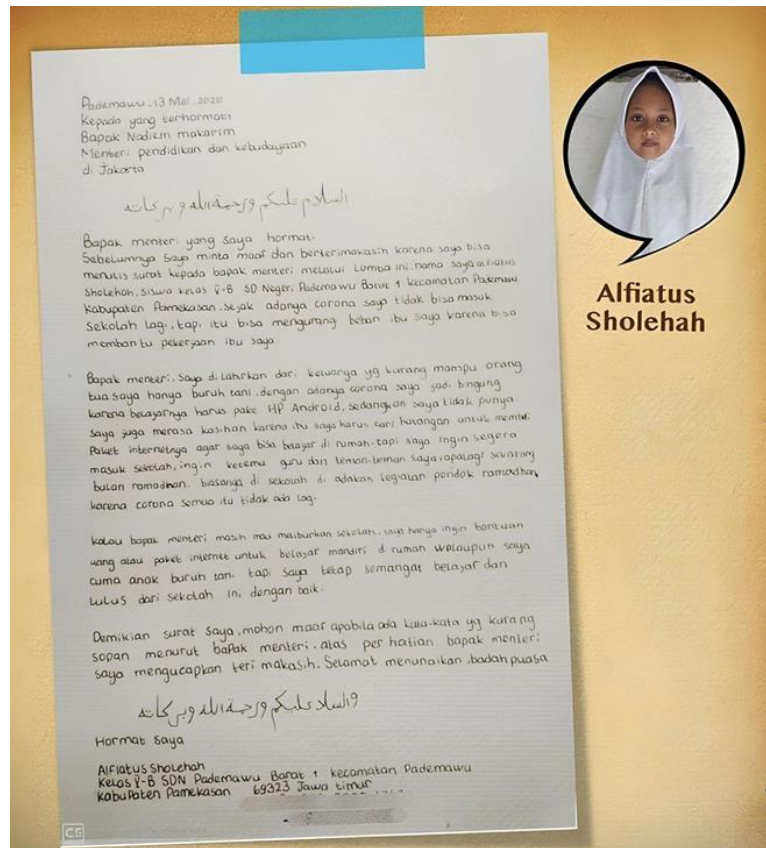 Pademawu, 13 Mei 2020
Kepada yang terhormat
Bapak Nadiem makarim
Menteri pendidikan dan kebudayaan
di Jakarta
السلام عليكم ورحمة الله وبركاته
Bapak menteri yang saya hormati
Sebelumnya saya minta maaf dan berterimakasih karena saya bisa
menulis surat kepada bapak menteri melalui Lomba ini. nama saya alfiatus
Sholehah, siswa kelas V-B SD Negeri Pademawu Barat 1 kecamatan Pademawu
Kabupaten Pamekasan. sejak adanya corona saya tidak bisa masuk
sekolah lagi, tapi itu bisa mengurang beban ibu saya karena bisa
membantu pekerjaan ibu saya.
Bapak menteri, saya di Lahirkan dari keluarga yg kurang mampu orang
tua saya hanya buruh tani. dengan adanya corona saya jadi bingung
karena belajarnya harus pake HP Android, sedangkan saya tidak punya.
Saya juga merasa kasihan karena ibu saya harus cari hutangan untuk membeli
Paket internetnya agar saya bisa belajar di rumah. tapi saya ingin segera
masuk sekolah, ingin ketemu guru dan teman-teman saya. apalagi sekarang
bulan ramadhan, biasanya di sekolah di adakan kegiatan pondok ramadhan,
karena corona semua itu tidak ada lagi.
kalau bapak menteri masih mau meliburkan sekolah. saya hanya ingin bantuan
uang atau paket internet untuk belajar mandiri di rumah walaupun saya
cuma anak buruh tani tapi saya tetap semangat belajar dan
Lulus dari sekolah ini dengan baik.
Demikian surat saya, mohon maaf apabila ada kata-kata yg kurang
sopan menurut bapak menteri. atas perhatian bapak menteri
saya mengucapkan teri makasih. Selamat menunaikan ibadah puasa
والسلام عليكم ورحمة الله وبركاته
Hormat saya
Alfiatus Sholehah
Kelas V-B SDN Pademawu Barat 1 kecamatan Pademawu
Kabupaten Pamekasan 69323 Jawa timur
CS
Alfiatus
Sholehah